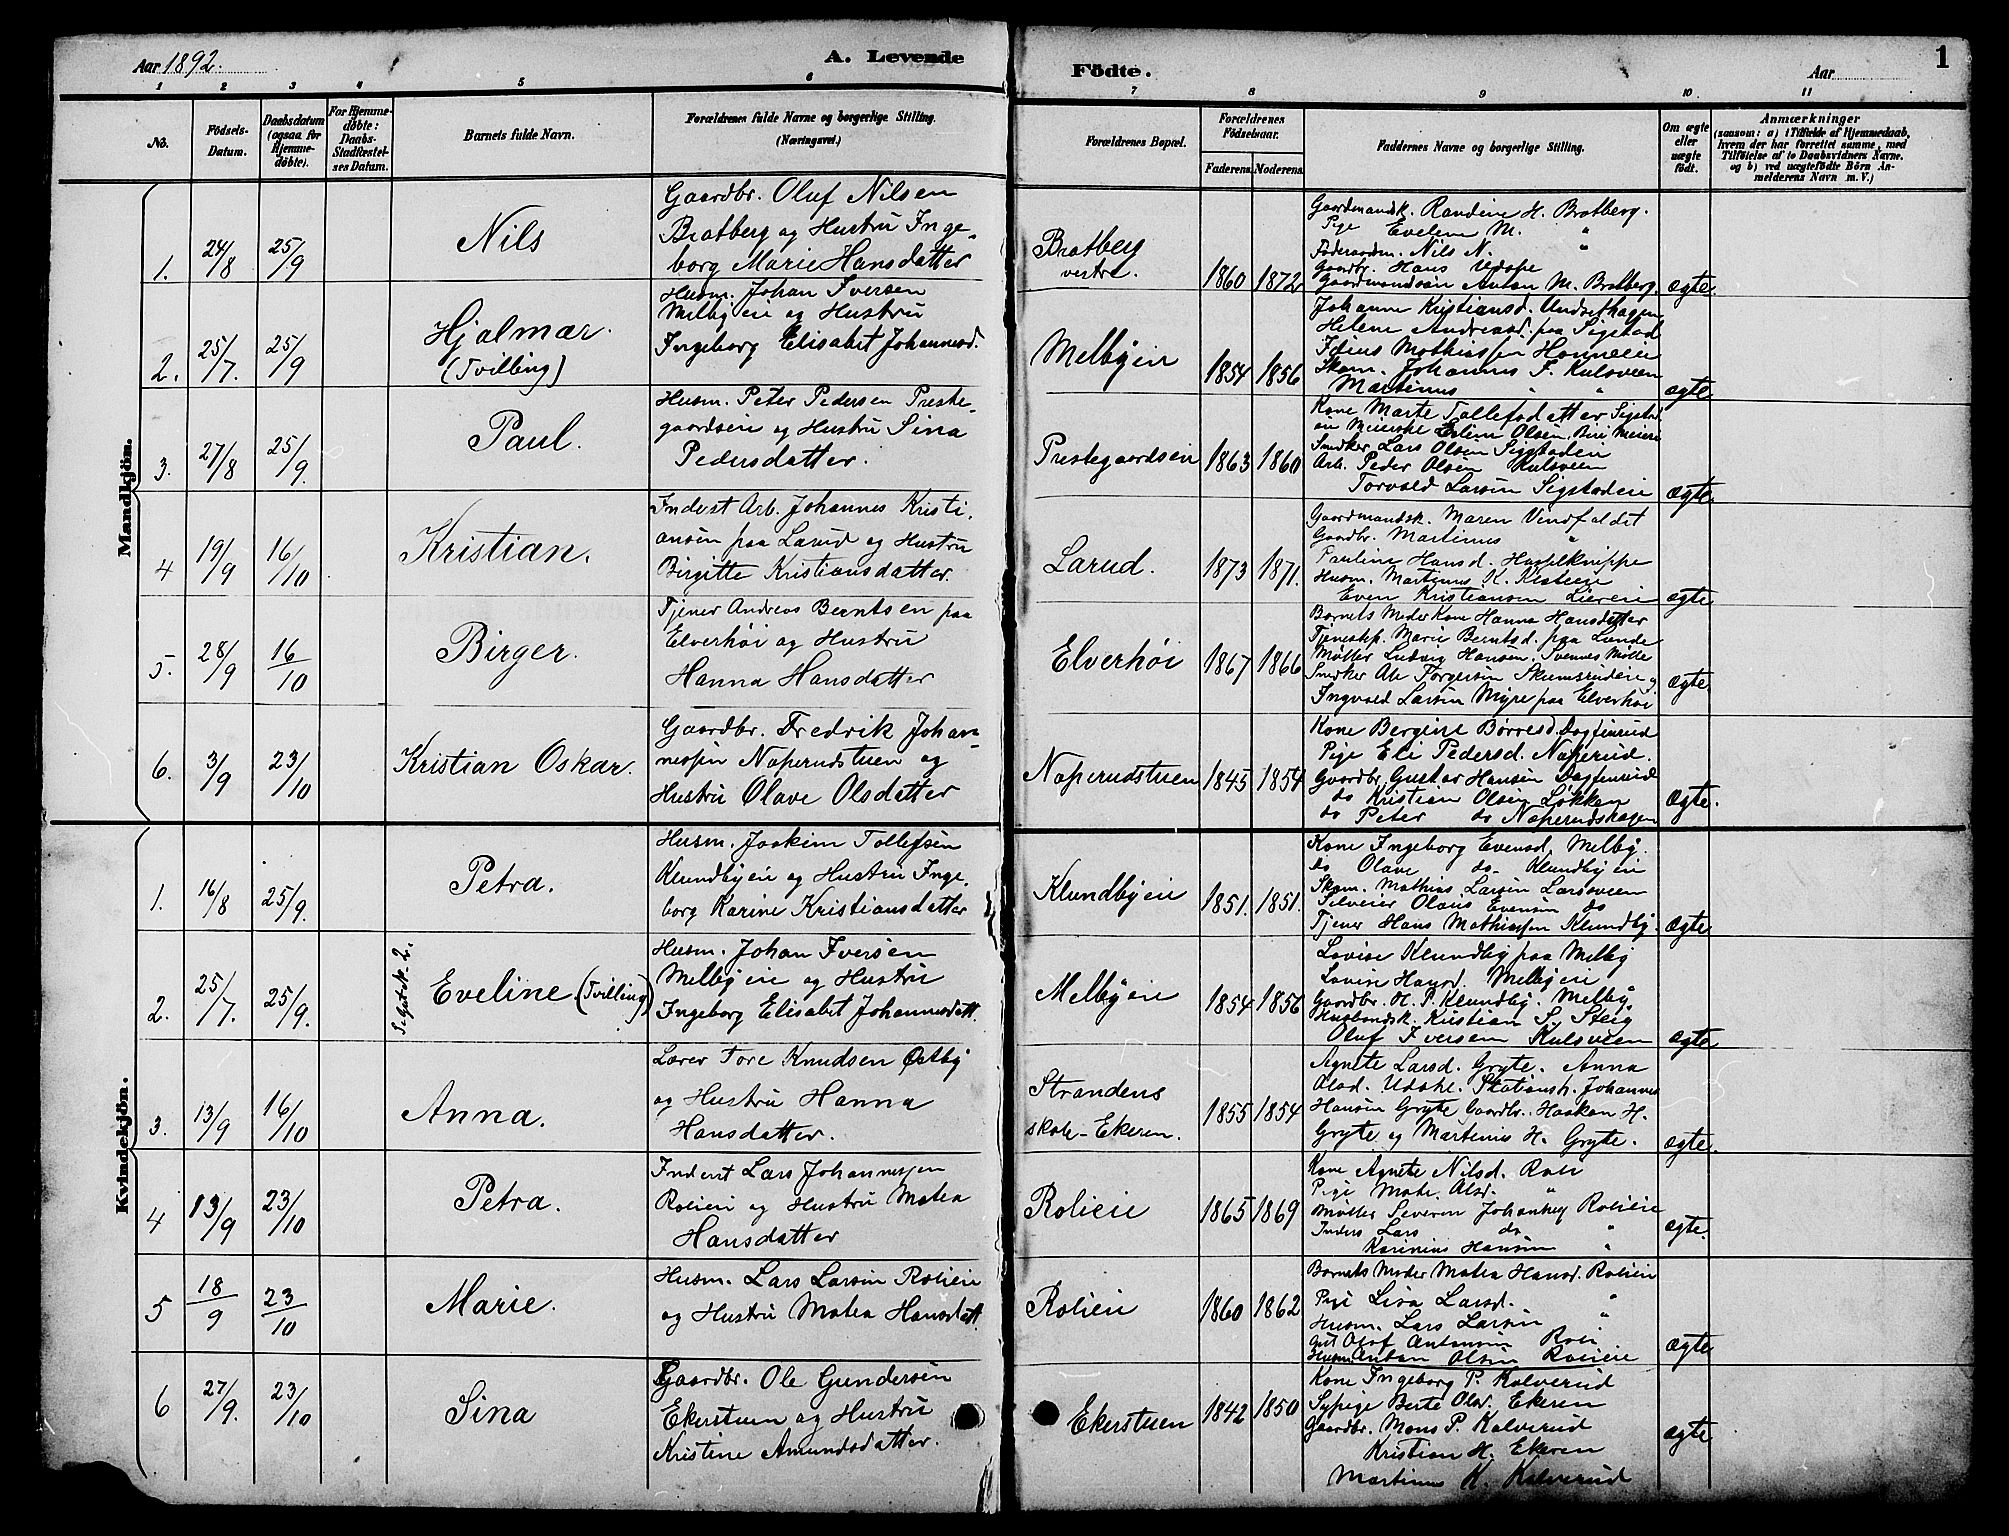 Aar 1892.
A. Levende
Födte.
Aar
1
1 2 3 4 5 6 7 8 9 10 11
No.
Födsels-
Datum.
Daabsdatum
(ogsaa for
Hjemme-
döbte).
For Hjemme-
döbte:
Daabs-
Stadfæstel-
ses Datum.
Barnets fulde Navn.
Forældrenes fulde Navne og borgerlige Stilling.
(Næringsvei.)
Forældrenes Bopæl.
Forældrenes
Födselsaar.
Faderens. Moderens.
Faddernes Navne og borgerlige Stilling.
Om ægte
eller
uægte
födt.
Anmærkninger
(saasom: a) i Tilfælde af Hjemmedaab,
hvem der har forrettet samme, med
Tilföielse af to Daabsvidners Navne.
og b) ved uægtefödte Börn An-
melderens Navn m. V.)
Mandkjön.
1. 24/8 25/9
Nils
Gaardbr. Oluf Nilsen
Bratberg og Hustru Inge-
borg Marie Hansdatter
Bratberg
vestre.
1860 1872
Gaardmandsk. Randine H. Bratberg.
Pige Eveline M. "
Föderaadsm. Nils N. "
Gaardbr. Hans
Gaardmandssön Anton M. Bratberg.
ægte.
2. 25/7. 25/9
Hjalmar.
(Tvilling)
Husm. Johan Iversen
Melbyeie og Hustru
Ingeborg Elisabet Johannesd.
Melbyeie
1854 1856
Johanne Kristiansd.
Helene Andreasd. paa Sigstad
Mathiassen
Skom. Johannes F. Kulsveen
Martinus "
ægte
3. 27/8 25/9.
Paul.
Husm. Peter Pedersen Preste-
gaardseie og Hustru Sina
Pedersdatter.
Prestegaardseie
1863 1860
Kone Marte Tollefsdatter Sigstad
eie Meierske Eline Olsen, Biri Meieri
Snedker Lars Olsen Sigstadeie
Arb. Peder Olsen Kulsveen
Torvald Larsen Sigstadeie
ægte
4 19/9 16/10
Kristian.
Inderst Arb. Johannes Kristi-
ansen paa Larud og Hustru
Birgitte Kristiansdatter.
Larud.
1873 1871.
Gaardmandsk. Maren Vindfaldet
Gaardbr. Martinus "
Pauline Hansd. Hasselknippe
Husm. Martinus K.
Even Kristiansen Liereie
ægte
5. 28/9 16/10
Birger.
Tjener Andreas Berntsen paa
Elverhöi og Hustru
Hanna Hansdatter
Elverhöi
1867 1866
Barnets Moder Kone Hanna Hansdatter
Tjenestep. Marie Berntsd. paa Lunde
Møller Ludvig Hansen. Svennes Mølle
Snedker Ole Torgersen Skumsrudeie og
Ingvald Larsen Myre paa Elverhöi
ægte
6. 3/9 23/10
Kristian Oskar.
Gaardbr. Fredrik Johan-
nessen Næperudstuen og
Hustru Olave Olsdatter
Næperudstuen
1845 1854
Kone Bergine Børresd. Dagfinrud
Pige Eli Pedersd. Næperud.
Gaardbr. Gustav Hansen Dagfinrud
do Kristian Olsen Løkken
do Peter do Næperudshagen
ægte.
Kvindekjön.
1. 16/8 25/9.
Petra.
Husm. Joakim Tollefsen
Klundbyeie og Hustru Inge-
borg Karine Kristiansdatter
Klundbyeie
1851. 1851.
Kone Ingeborg Evensd. Melby.
do Olave do. Klundbyeie
Skom. Mathias Larsen Larsveen
Olaus Evensen do
Tjener Hans Mathiassen Klundby.
ægte
2. 25/7. 25/9.
Se Gut N. 2.
Eveline (Tvilling)
Husm. Johan Iversen
Melbyeie og Hustru
Ingeborg Elisabet Johannesdatt.
Melbyeie
1854 1856
Lovise Klundby paa Melby
Lovise Hansd. Melbyeie
Gaardbr. H. P. Klundby. Melby.
Husmandsk. Kristian S. Steig
Oluf Iversen Kulsveen
ægte
3. 13/9 16/10
Anna.
Lærer Tore Knudsen Østby
og Hustru Hanna
Hansdatter.
Strandens
skole - Ekeren.
1855 1854
Agnete Larsd. Gryte. Anna
Olsd. Udahl. Stationsh. Johannes
Hansen Gryte Gaardbr. Haakon H.
Gryte og Martinus H. Gryte.
ægte.
4 13/9 23/10
Petra.
Inderst Lars Johannessen
Rolieie og Hustru Matea
Hansdatter
Rolieie
1865 1869
Kone Agnete Nilsd. Roli
Pige Mate. Olsd. "
Møller Severin Johannes Rolieie
Inders Lars do "
Karinius Hansen "
ægte.
5 18/9 23/10
Marie.
Husm. Lars Larsen Rolieie
og Hustru Matea Hansdatt.
Rolieie
1860 1862
Barnets Moder Matea Hansd. Rolieie
Pige Lisa Larsd. "
Husm. Lars Larsen "
Gut Olof Antonsen Roli
Husm. Anton Olsen Rolieie
ægte
6 27/9. 23/10
Sina
Gaardbr. Ole Gundersen
Ekerstuen og Hustru
Kristine Amundsdatter.
Ekerstuen
1842 1850
Kone Ingeborg P. Kalverud
Sypige Berte Olsd. Ekeren
Gaardbr. Mons P. Kalverud
Kristian H. Ekeren
Martinus K. Kalverud
ægte